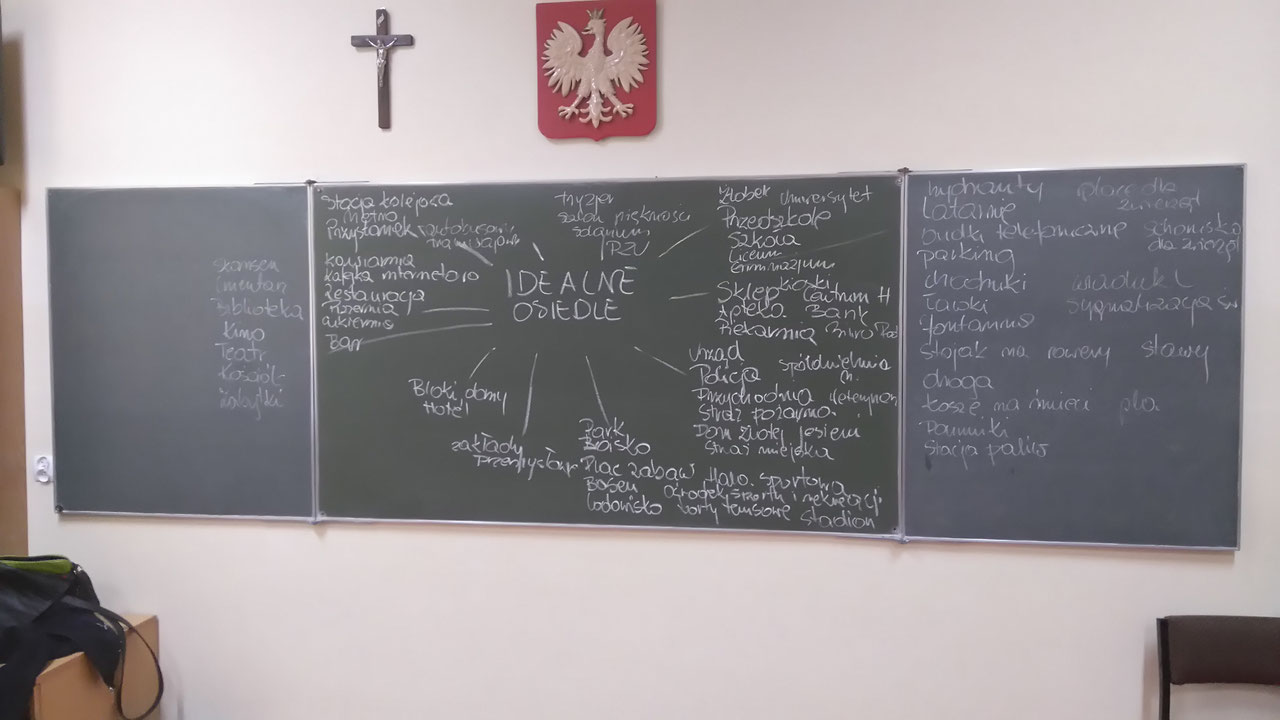 skansen
Cmentarz
Biblioteka
Kino
Teatr
Kościół
Zabytki
Stacja kolejowa
Metro
Przystanek autobusowy
tramwajowy
Kawiarnia
Kafejka internetowa
Restauracja
Pizzeria
cukiernia
Bar
fryzjer
salon piękności
solarium
IDEALNE
OSIEDLE
Bloki, domy
Hotel
zakłady
przemysłowe
Park
Boisko
Plac zabaw Hala sportowa
Basen Ośrodek sportu i rekreacji
Lodowisko korty tenisowe stadion
Żłobek Uniwersytet
Przedszkole
Szkoła
Liceum
Gimnazjum
Sklep kioski
Centrum H
Apteka Bank
Piekarnia Biuro Pod
Urząd
Policja spółdzielnia
m.
Przychodnia weteryn
Straż pożarna
Dom złotej jesieni
Straż miejska
hydranty plac dla
zwierząt
Latarnie
budki telefoniczne schronisko
dla zwierząt
parking
chodniki wiadukt
Ławki sygnalizacja św
fontanna
stojak na rowery stawy
droga
kosze na śmieci
Pomniki
stacja paliw